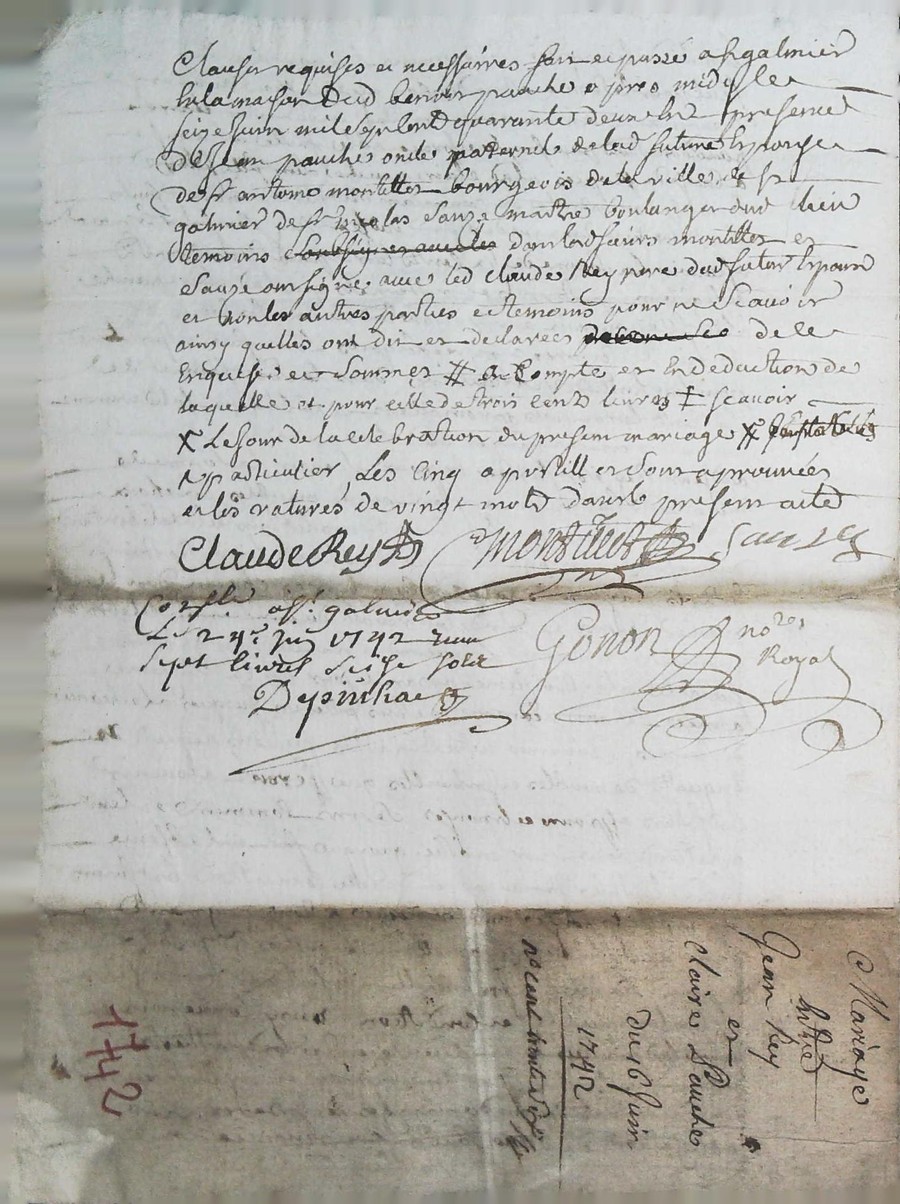 Clauses requises et necessaires fait et passé a st galmier
En la maison Dud benoit pauche apres midy le
seizie juin mil sept cent quarante deux En presence
de Jean pauche oncle paternel de lad future Epouse
de sr antoine montiller bourgeois de la ville de st
galmier de sr nicolas sauze maitre boulanger dud lieu
temoins dont lesd sieurs montiller et
sauze ont signé avec led claude Rey pere dud futur Epoux
et non les autres parties et temoins pour ne scavoir
ainsy quelles ont dit et declarées de ce
Enquises et sommés # a compte et En deduction de
laquelle et pour celle de trois cents livres ‡ scavoir
X Le jour de la celebration du present mariage X
particulier, Les cinq apostill et sont aprouvées
et les ratures de vingt mots dans le present acte
Claude Rey montillet Sauzey
Conslle a st galmier
Le 24e juin 1742 recu
sept livres seise sols
Depinhac
Gonon nore
Royal
Mariage
Entre
Jean Rey
et
Claire Pauche
du 16 Juin
1742
1742